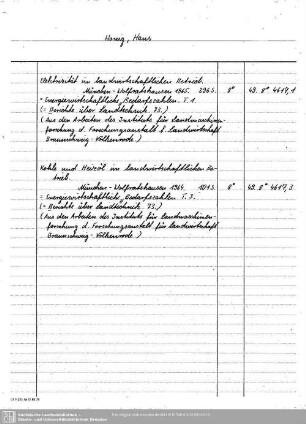 Hans
Elektrizität im landwirtschaftlichen Betrieb.
München-Wolfratshausen 1965. 296 S. 8° 49. 8° 4617,1
= Energiewirtschaftliche Bedarfszahlen. T. 1
(= Berichte über Landtechnik. 73.)
(Aus den Arbeiten des Instituts für Landmaschinen-
forschung d. Forschungsanstalt f. Landwirtschaft
Braunschweig-Völkenrode.)
Kohle und Heizöl im landwirtschaftlichen Be-
trieb.
München-Wolfratshausen 1964. 8° 49. 8° 4617,3
= Energiewirtschaftliche Bedarfszahlen. T. 3.
(= Berichte über Landtechnik. 73.)
(Aus den Arbeiten des Instituts für Landmaschinen-
forschung d. Forschungsanstalt für Landwirtschaft
Braunschweig-Völkenrode.)